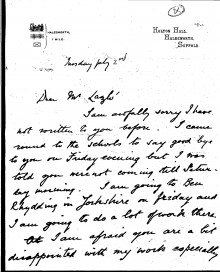 HALESWORTH,
HOLTON HALL,
HALESWORTH,
SUFFOLK.
Tuesday July 2nd
Dear Mr Laszlo
I am awfully sorry I have
not written to you before. I came
round to the schools to say good bye
to you on Friday evening but I was
told you were not coming till Satur-
day morning. I am going to Ben
Rhydding in Yorkshire on Friday and
I am going to do a lot of work there.
I am afraid you are a bit
disappointed with my work especially